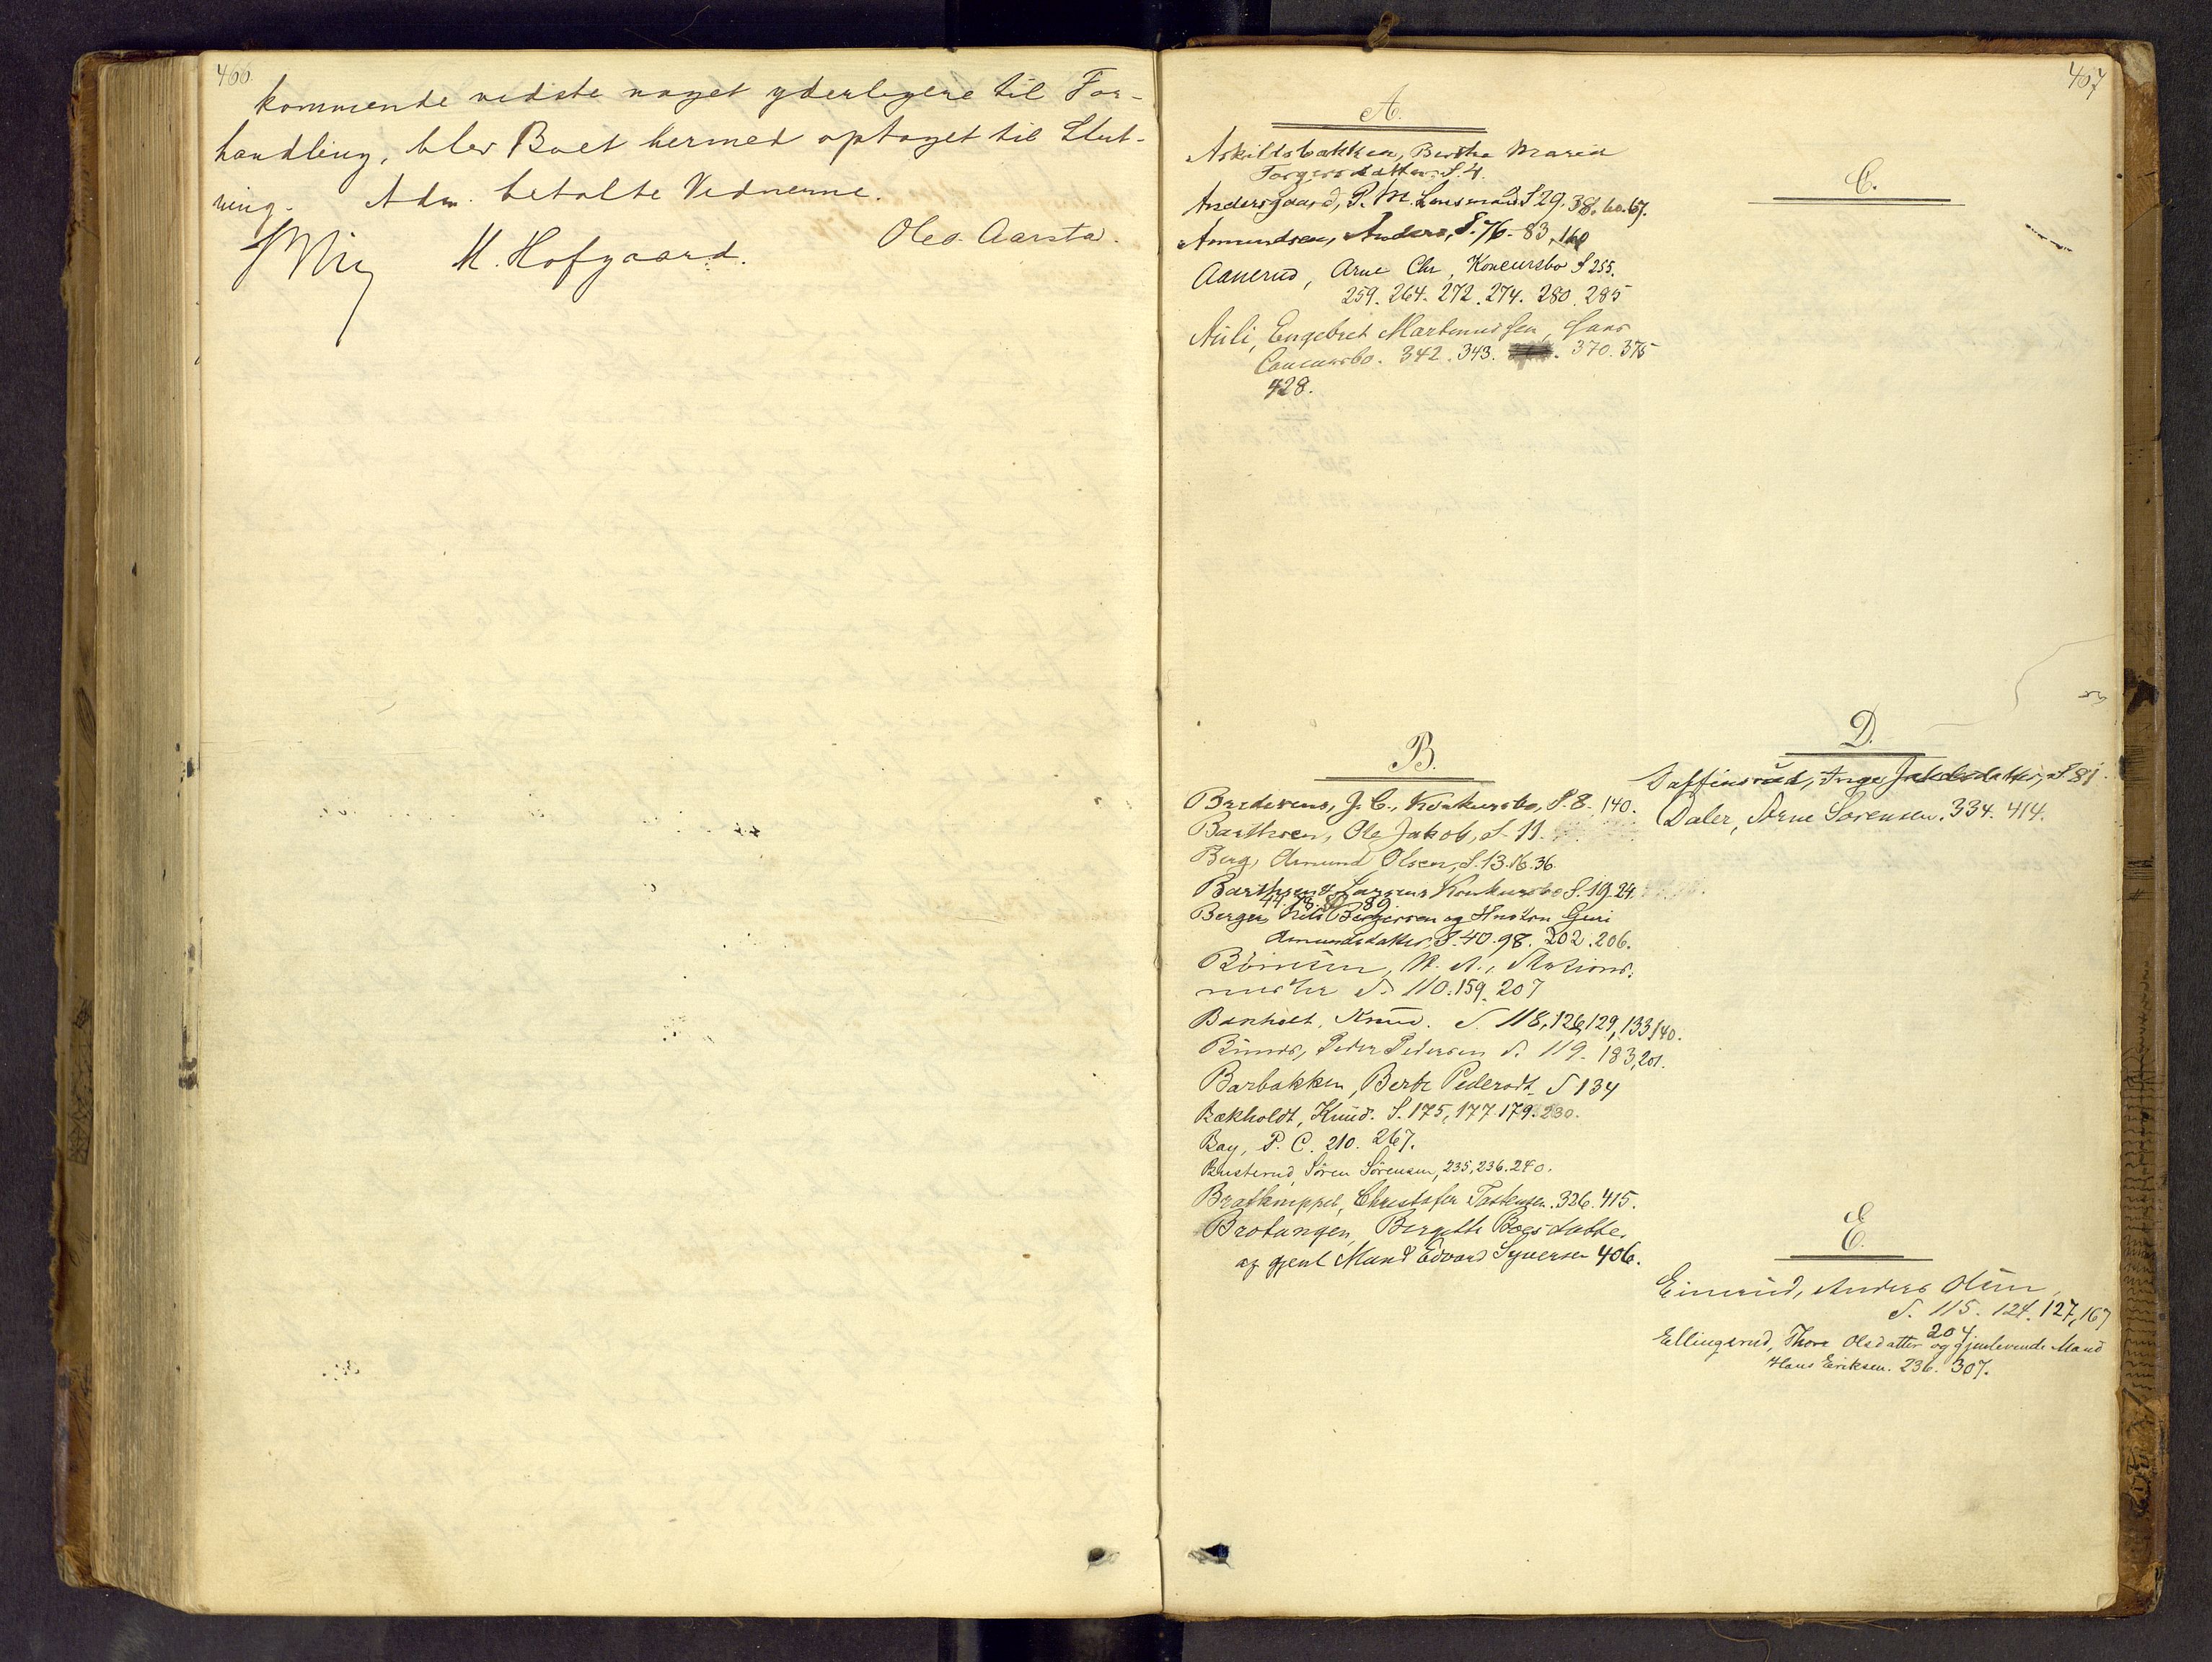 466.
kommende vidste noget yderligere til For-
handling, blev Boet hermed optaget til Slut-
ning. Adm. betalte Vidnerne.
M. Hofgaard. Oleo. Aarsta.
467
A.
Askildsbakken, Berthe Maria
Torgersdatter S. 4.
Andersgaard, P. M. Lensmand S 29. 38. 60. 67.
Amundsen, Anders, S. 76. 83, 160
Aanerud, Arne Chr, Koncursbo S 255.
259. 264. 272. 274. 280. 285
Auli, Engebret Martinussen, hans
Concursbo. 342. 343. 370. 375
428.
B.
J. C., Konkursbo, S. 8. 140.
Barthsen, Ole Jakob, S. 11.
Berg, Amund Olsen, S. 13. 16. 36.
Barthsen & Larsens Konkursbo S. 19. 24.
44. 78. 80 89.
Berger, Nils Bergersen og Hustru Guri
Amundsdatter, S. 40. 98. 202. 206.
S. 110. 159. 207
Bakholt, Knud. S. 118, 126, 129, 133, 140.
Peder Pedersen S. 119. 183, 201.
Barbakken, Berte Pedersdt. S 134
Bækholdt, Knud. S. 175, 177. 179. 230.
Bay, P. C. 210. 267.
Busterud, Sören Sörensen, 235, 236. 240.
Bratknippel, Christofer Tostensen. 326. 415.
Brotangen, Bergitte Boesdatter
og gjenl Mand Edvard Syversen 406.
C.
D.
Daffinsrud, Inge Jakobsdatter, S. 81.
Daler, Arne Sorensen. 334. 414.
E.
Eimrud, Anders Olsen,
S. 115. 124. 127, 167
204
Ellingsrud, Thore Olsdatter og gjenlevende Mand
Hans Eriksen. 236. 307.